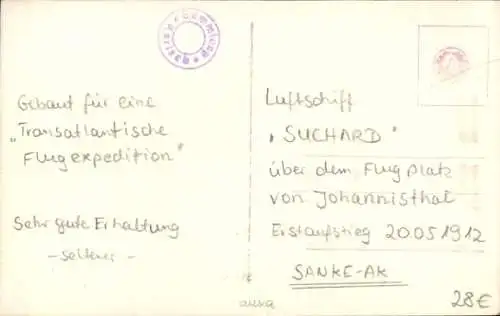 Sammlung
Gebaut für eine
"Transatlantische
Flugexpedition"
Sehr gute Erhaltung
- selten -
Luftschiff
"SUCHARD"
über dem Flugplatz
von Johannisthal
Erstaufstieg 20.05.1912
SANKE-AK
28€